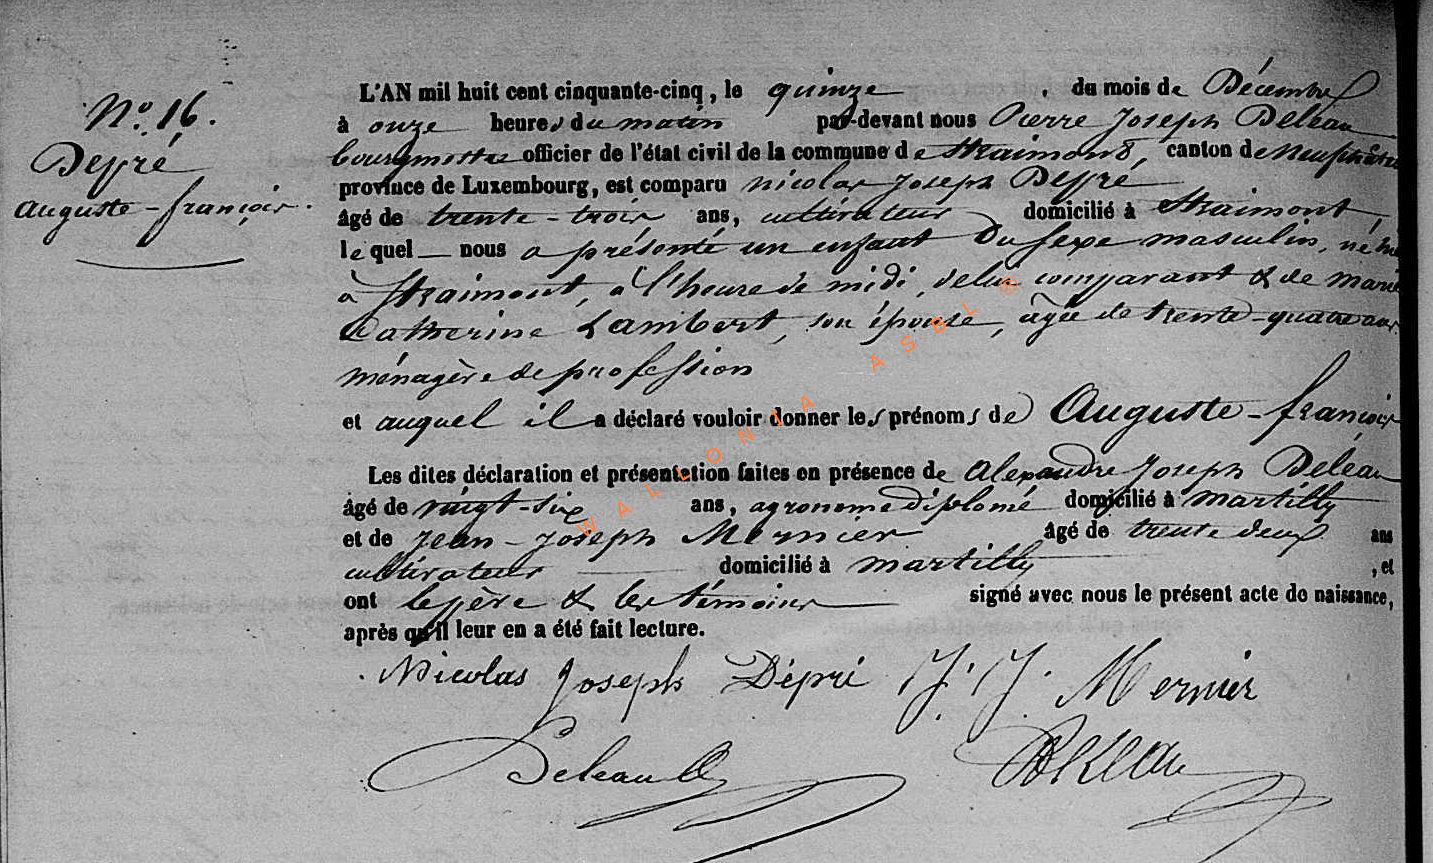 N.º 16.
Depré
Auguste-françois.
L'AN mil huit cent cinquante-cinq, le quinze, du mois de Décembre
à onze heures du matin par-devant nous Pierre Joseph Deleau
bourgmestre officier de l'état civil de la commune de Straimont, canton de Neufchâteau
province de Luxembourg, est comparu nicolas Joseph Depré
âgé de trente-trois ans, cultivateur domicilié à Straimont,
le quel — nous a présenté un enfant du sexe masculin, né
à Straimont, à l'heure de midi, de lui comparant & de marie
Catherine Lambert, son épouse, âgée de trente-quatre ans
ménagère de profession
et auquel il a déclaré vouloir donner les prénoms de Auguste-françois
Les dites déclaration et présentation faites en présence de Alexandre Joseph Deleau
âgé de vingt-six ans, agronome diplomé domicilié à martilly
et de Jean-Joseph Mernier âgé de trente deux ans
cultivateur domicilié à martilly, et
ont le père & les témoins signé avec nous le présent acte de naissance,
après qu'il leur en a été fait lecture.
Nicolas Joseph Dépré J. J. Mernier
Deleau
WALLONIA ASBL ©